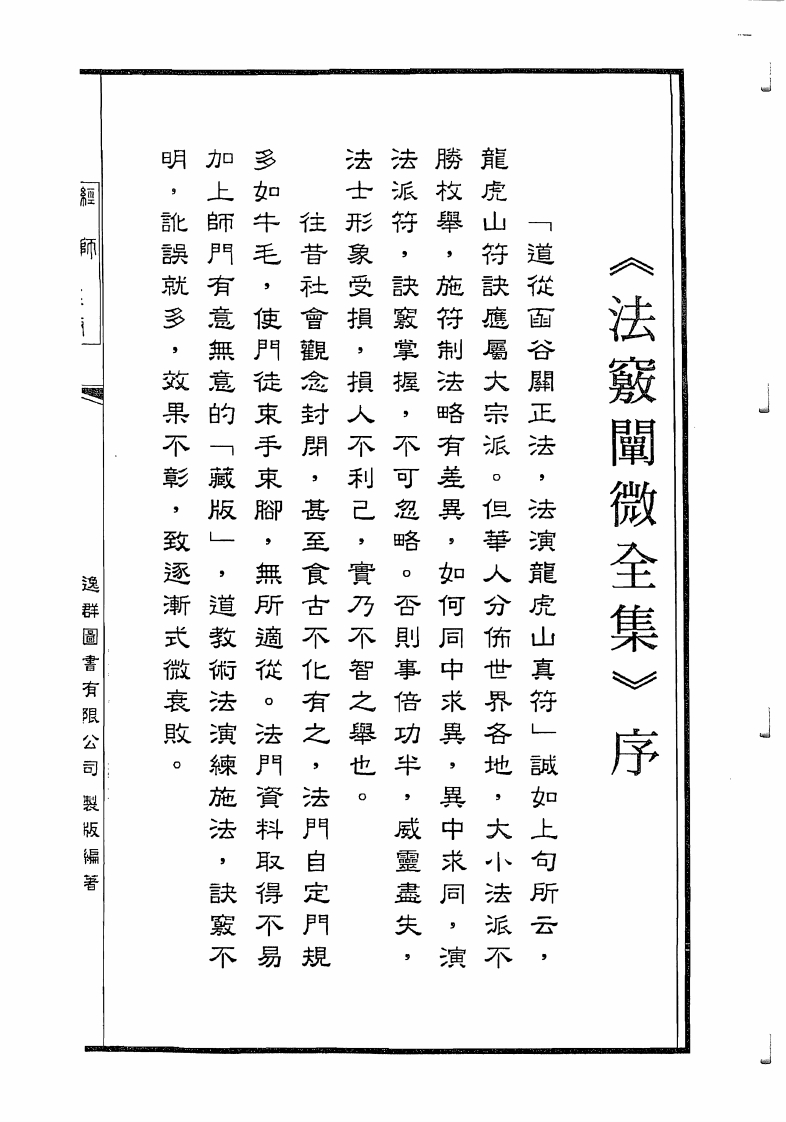 《法竅闡微全集》序
「道從函谷關正法，法演龍虎山真符」誠如上句所云，
龍虎山符訣應屬大宗派。但華人分佈世界各地，大小法派不
勝枚舉，施符制法略有差異，如何同中求異，異中求同，演
法派符，訣竅掌握，不可忽略。否則事倍功半，威靈盡失，
法士形象受損，損人不利己，實乃不智之舉也。
往昔社會觀念封閉，甚至食古不化有之，法門自定門規
多如牛毛，使門徒束手束腳，無所適從。法門資料取得不易
加上師門有意無意的「藏版」，道教術法演練施法，訣竅不
明，訛誤就多，效果不彰，致逐漸式微衰敗。
經師
逸群圖書有限公司 製版編著